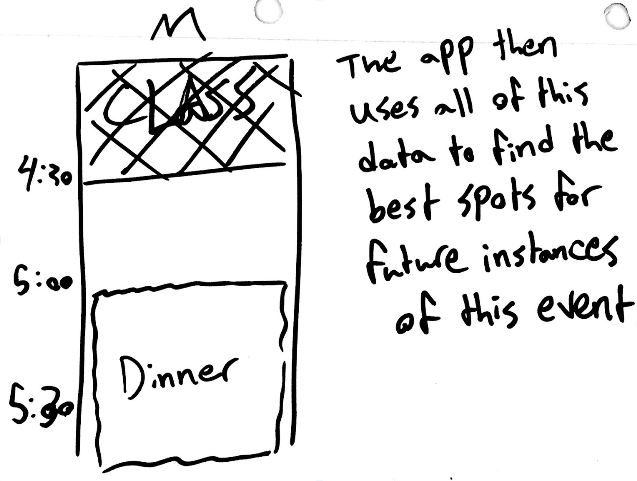 M
CLASS
4:30
5:00
Dinner
5:30
The app then
uses all of this
data to find the
best spots for
future instances
of this event